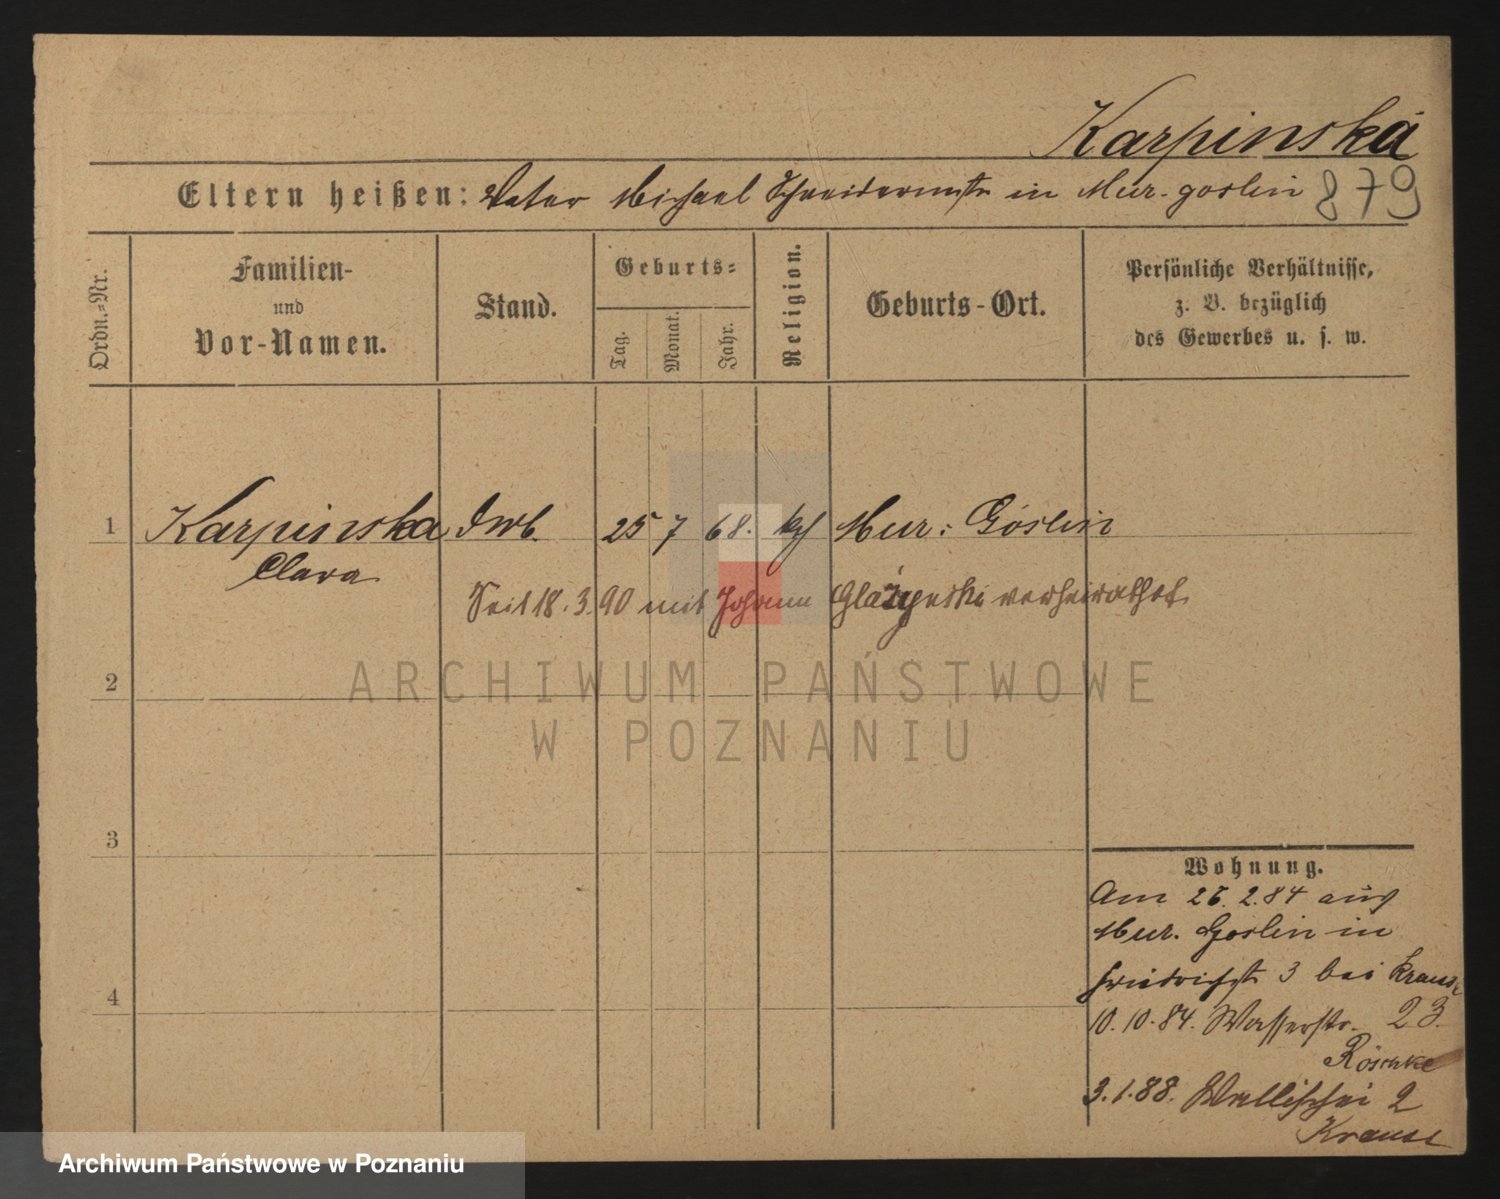 Karpinska
Eltern heißen: Vater Michael Schneidermstr in Mur. goslin 879
Ordn.=Nr.
Familien-
und
Vor-Namen.
Stand.
Geburts=
Tag.
Monat.
Jahr.
Religion.
Geburts-Ort.
Persönliche Verhältnisse,
z. B. bezüglich
des Gewerbes u. s. w.
1 Karpinska 25 7 68. kth Mur: Goslin
Clara
Seit 18.3.90 mit Johann verheirathet
ARCHIWUM PAŃSTWOWE
2
W POZNANIU
3
Wohnung.
Am 2.84 aus
Mur. Goslin in
4
Friedrichstr 3 bei Krause
10.10.84. Wasserstr. 23.
Röschke
3.1.88. Wallischei 2
Krause
Archiwum Państwowe w Poznaniu